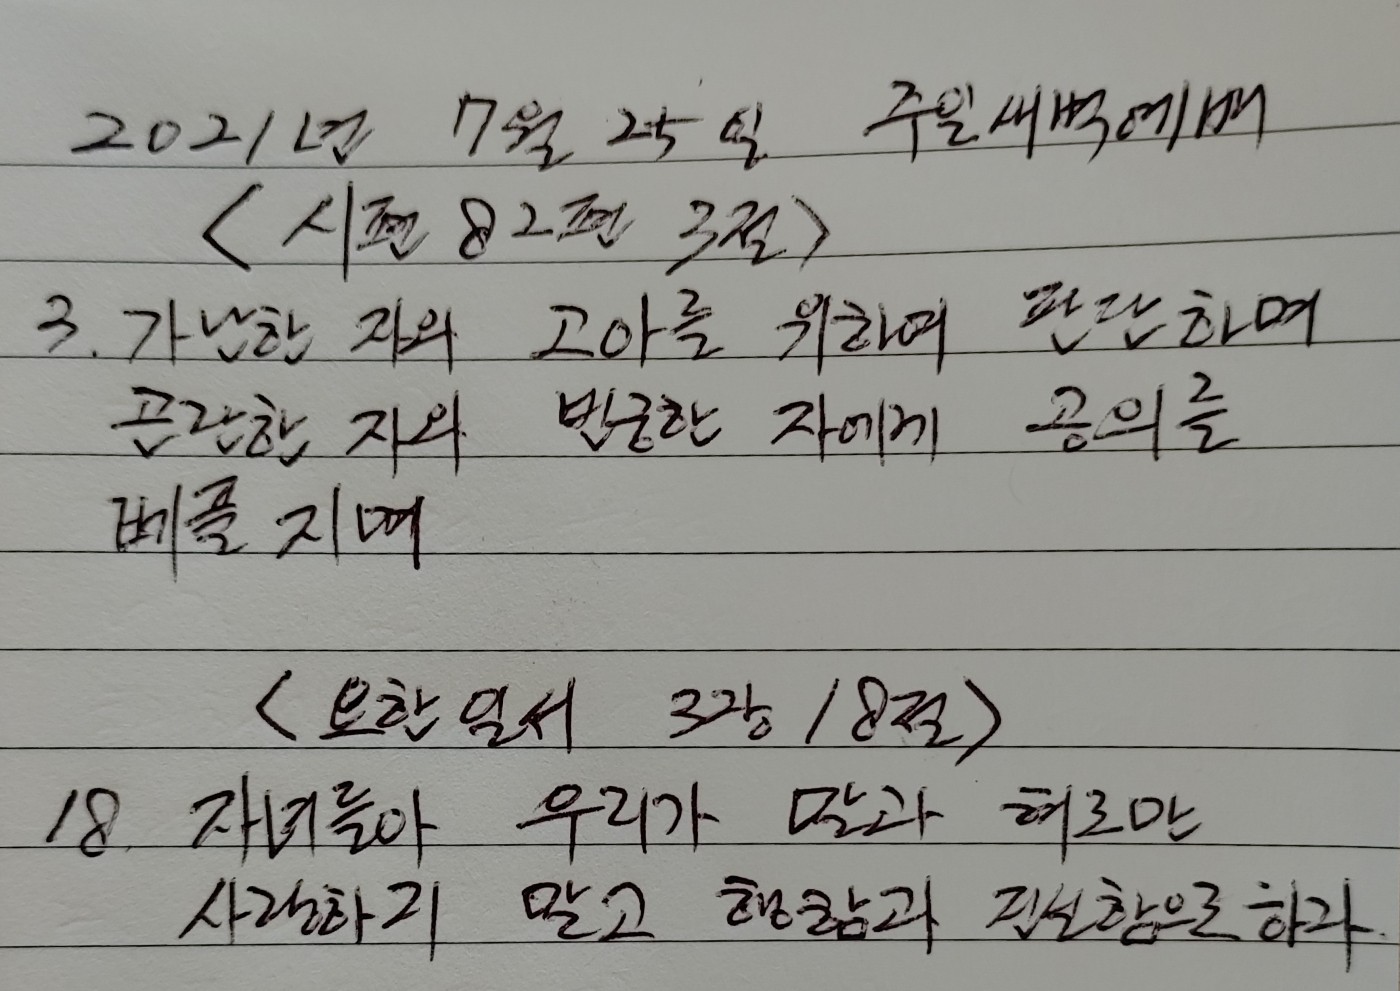 2021년 7월 25일 주일새벽예배
<시편 82편 3절>
3. 가난한 자와 고아를 위하여 판단하며
곤란한 자와 빈궁한 자에게 공의를
베플지며
<요한일서 3장 18절>
18. 자녀들아 우리가 말과 혀로만
사랑하지 말고 행함과 진실함으로 하라.